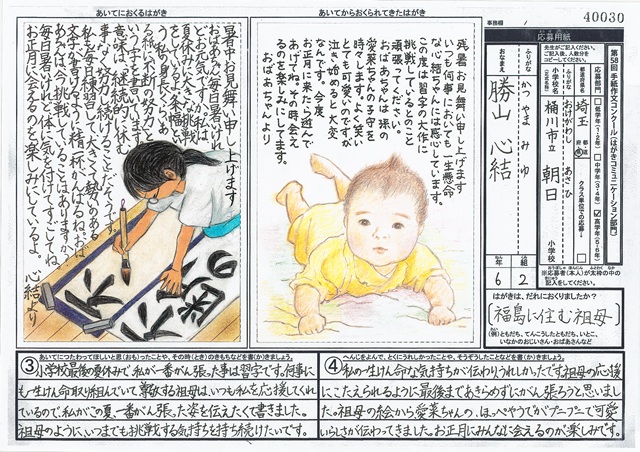 40030
事務欄
応募用紙
第58回 手紙作文コンクール〔はがきコミュニケーション部門〕
先生がご記入ください。
応募部門
低学年(1・2年)
中学年(3・4年)
高学年(5・6年)
都道府県名
埼玉
小学校名
おけがわし あさひ
桶川市立 朝日 小学校
クラス単位での応募
ふりがな かつやま みゆ
おなまえ 勝山 心結
年 組
6 2
※応募者(本人)が太枠の中の
記入をしてください。
はがきは、だれにおくりましたか?
福島に住む祖母
(例)ともだち、てんこうしたともだち、いとこ、
いなかのおじいさん・おばあさんなど
あいてにおくるはがき
暑中お見舞い申し上げます
おばあちゃん毎日暑いけれ
どお元気ですか。私は
をしているよ。条幅とい
う紙に「不断の努力」と
いう字を書いています。
意味は、継続的に休む
事なく努力を続けることだそうです。
私も毎日練習して大きくて勢いのある
文字が書けるように精一杯がんばるね。おば
あちゃんは今、挑戦していることはありますか。
毎日暑いけれど体に気を付けて、すごしてね。
お正月に会えるのを楽しみにしているよ。 心結より
あいてからおくられてきたはがき
残暑お見舞い申し上げます
いつも何事においても一生懸命
な心結ちゃんには感心しています。
この度は習字の大作に
挑戦しているとのこと
頑張ってください。
おばあちゃんは孫の
愛茉ちゃんの子守を
時々します。よく笑い
とても可愛いのですが
泣き始めると大変
なんです。今度
お正月に来たら遊んで
あげてね。その時会え
るのを楽しみにしてます。
おばあちゃんより
③ あいてにつたわってほしいと思(おも)ったことや、その時(とき)のきもちなどを書(か)きましょう。
小学校最後の夏休みで、私が一番がん張った事は習字です。何事に
も一生けん命取り組んでいて尊敬する祖母は、いつも私を応援してくれ
ているので、私がこの夏一番がん張った姿を伝えたくて書きました。
祖母のように、いつまでも挑戦する気持ちを持ち続けたいです。
④ へんじをよんで、とくにうれしかったことや、そうぞうしたことなどを書(か)きましょう。
私の一生けん命な気持ちが伝わりうれしかったです。祖母の応援
にこたえられるように最後まであきらめずにがん張ろうと思いまし
た。祖母の絵から愛茉ちゃんの、ほっぺやうでがプニプニで可愛
いらしさが伝わってきました。お正月にみんなに会えるのが楽しみです。